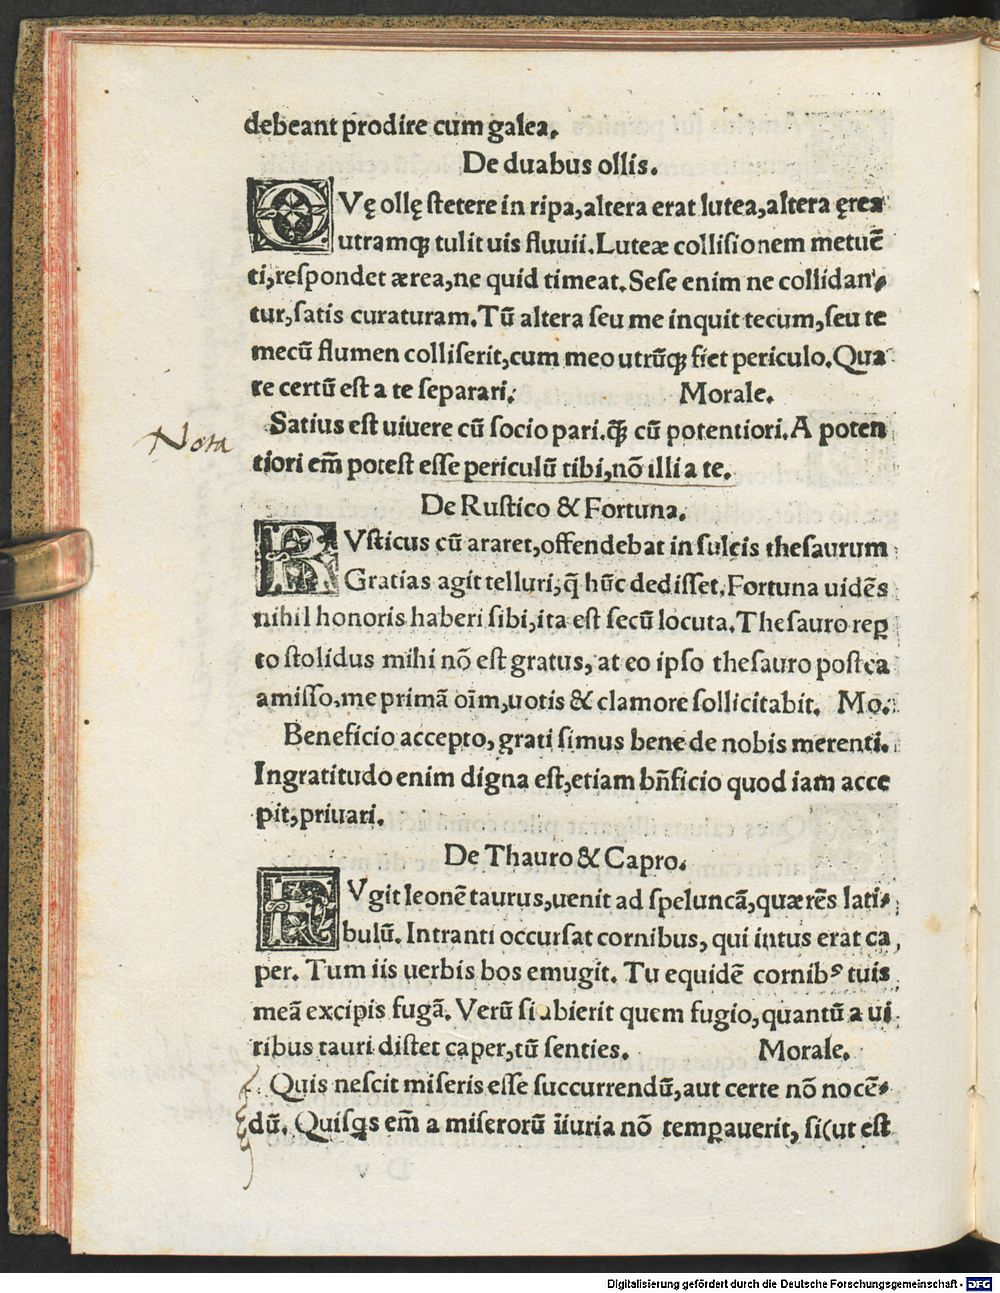 debeant prodire cum galea.
De duabus ollis.
DVę ollę stetere in ripa, altera erat lutea, altera ęrea
utramq; tulit uis fluuii. Luteæ collisionem metuē
ti, respondet ærea, ne quid timeat. Sese enim ne collidan⸗
tur, satis curaturam. Tū altera seu me inquit tecum, seu te
mecū flumen colliserit, cum meo utrūq; fiet periculo. Qua
re certū est a te separari. Morale.
Satius est uiuere cū socio pari. q̄; cū potentiori. A poten
Nota
tiori em̄ potest esse periculū tibi, nō illi a te.
De Rustico & Fortuna.
RVsticus cū araret, offendebat in sulcis thesaurum
Gratias agit telluri, q̄ hūc dedisset. Fortuna uidēs
nihil honoris haberi sibi, ita est secū locuta. Thesauro rep
to stolidus mihi nō est gratus, at eo ipso thesauro postea
amisso, me primā oīm, uotis & clamore sollicitabit. Mo.
Beneficio accepto, grati simus bene de nobis merenti.
Ingratitudo enim digna est, etiam bn̄ficio quod iam acce
pit, priuari.
De Thauro & Capro.
FVgit leonē taurus, uenit ad speluncā, quærēs lati⸗
bulū. Intranti occursat cornibus, qui intus erat ca
per. Tum iis uerbis bos emugit. Tu equidē cornibꝰ tuis
meā excipis fugā. Verū si abierit quem fugio, quantū a ui
ribus tauri distet caper, tū senties. Morale.
Quis nescit miseris esse succurrendū, aut certe nō nocē⸗
dū. Quisqs em̄ a miserorū īiuria nō temꝑauerit, sicut est
Digitalisierung gefördert durch die Deutsche Forschungsgemeinschaft - DFG